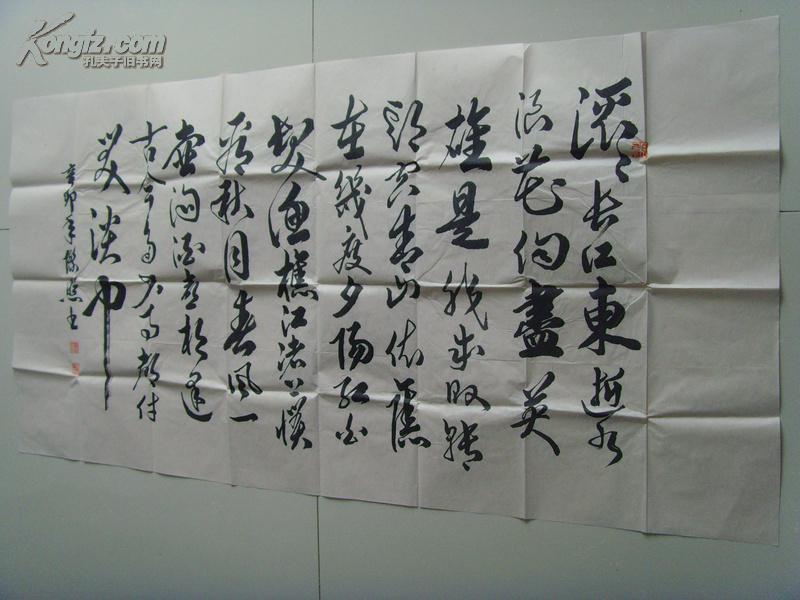 Kongfz.com
孔夫子旧书网
滚〻长江東逝水
浪花淘盡英
雄是非成败转
頭空青山依舊
在幾度夕陽红白
髮渔樵江渚上惯
看秋月春風一
壶浊酒喜相逢
古今多少事都付
笑谈中
辛卯年书